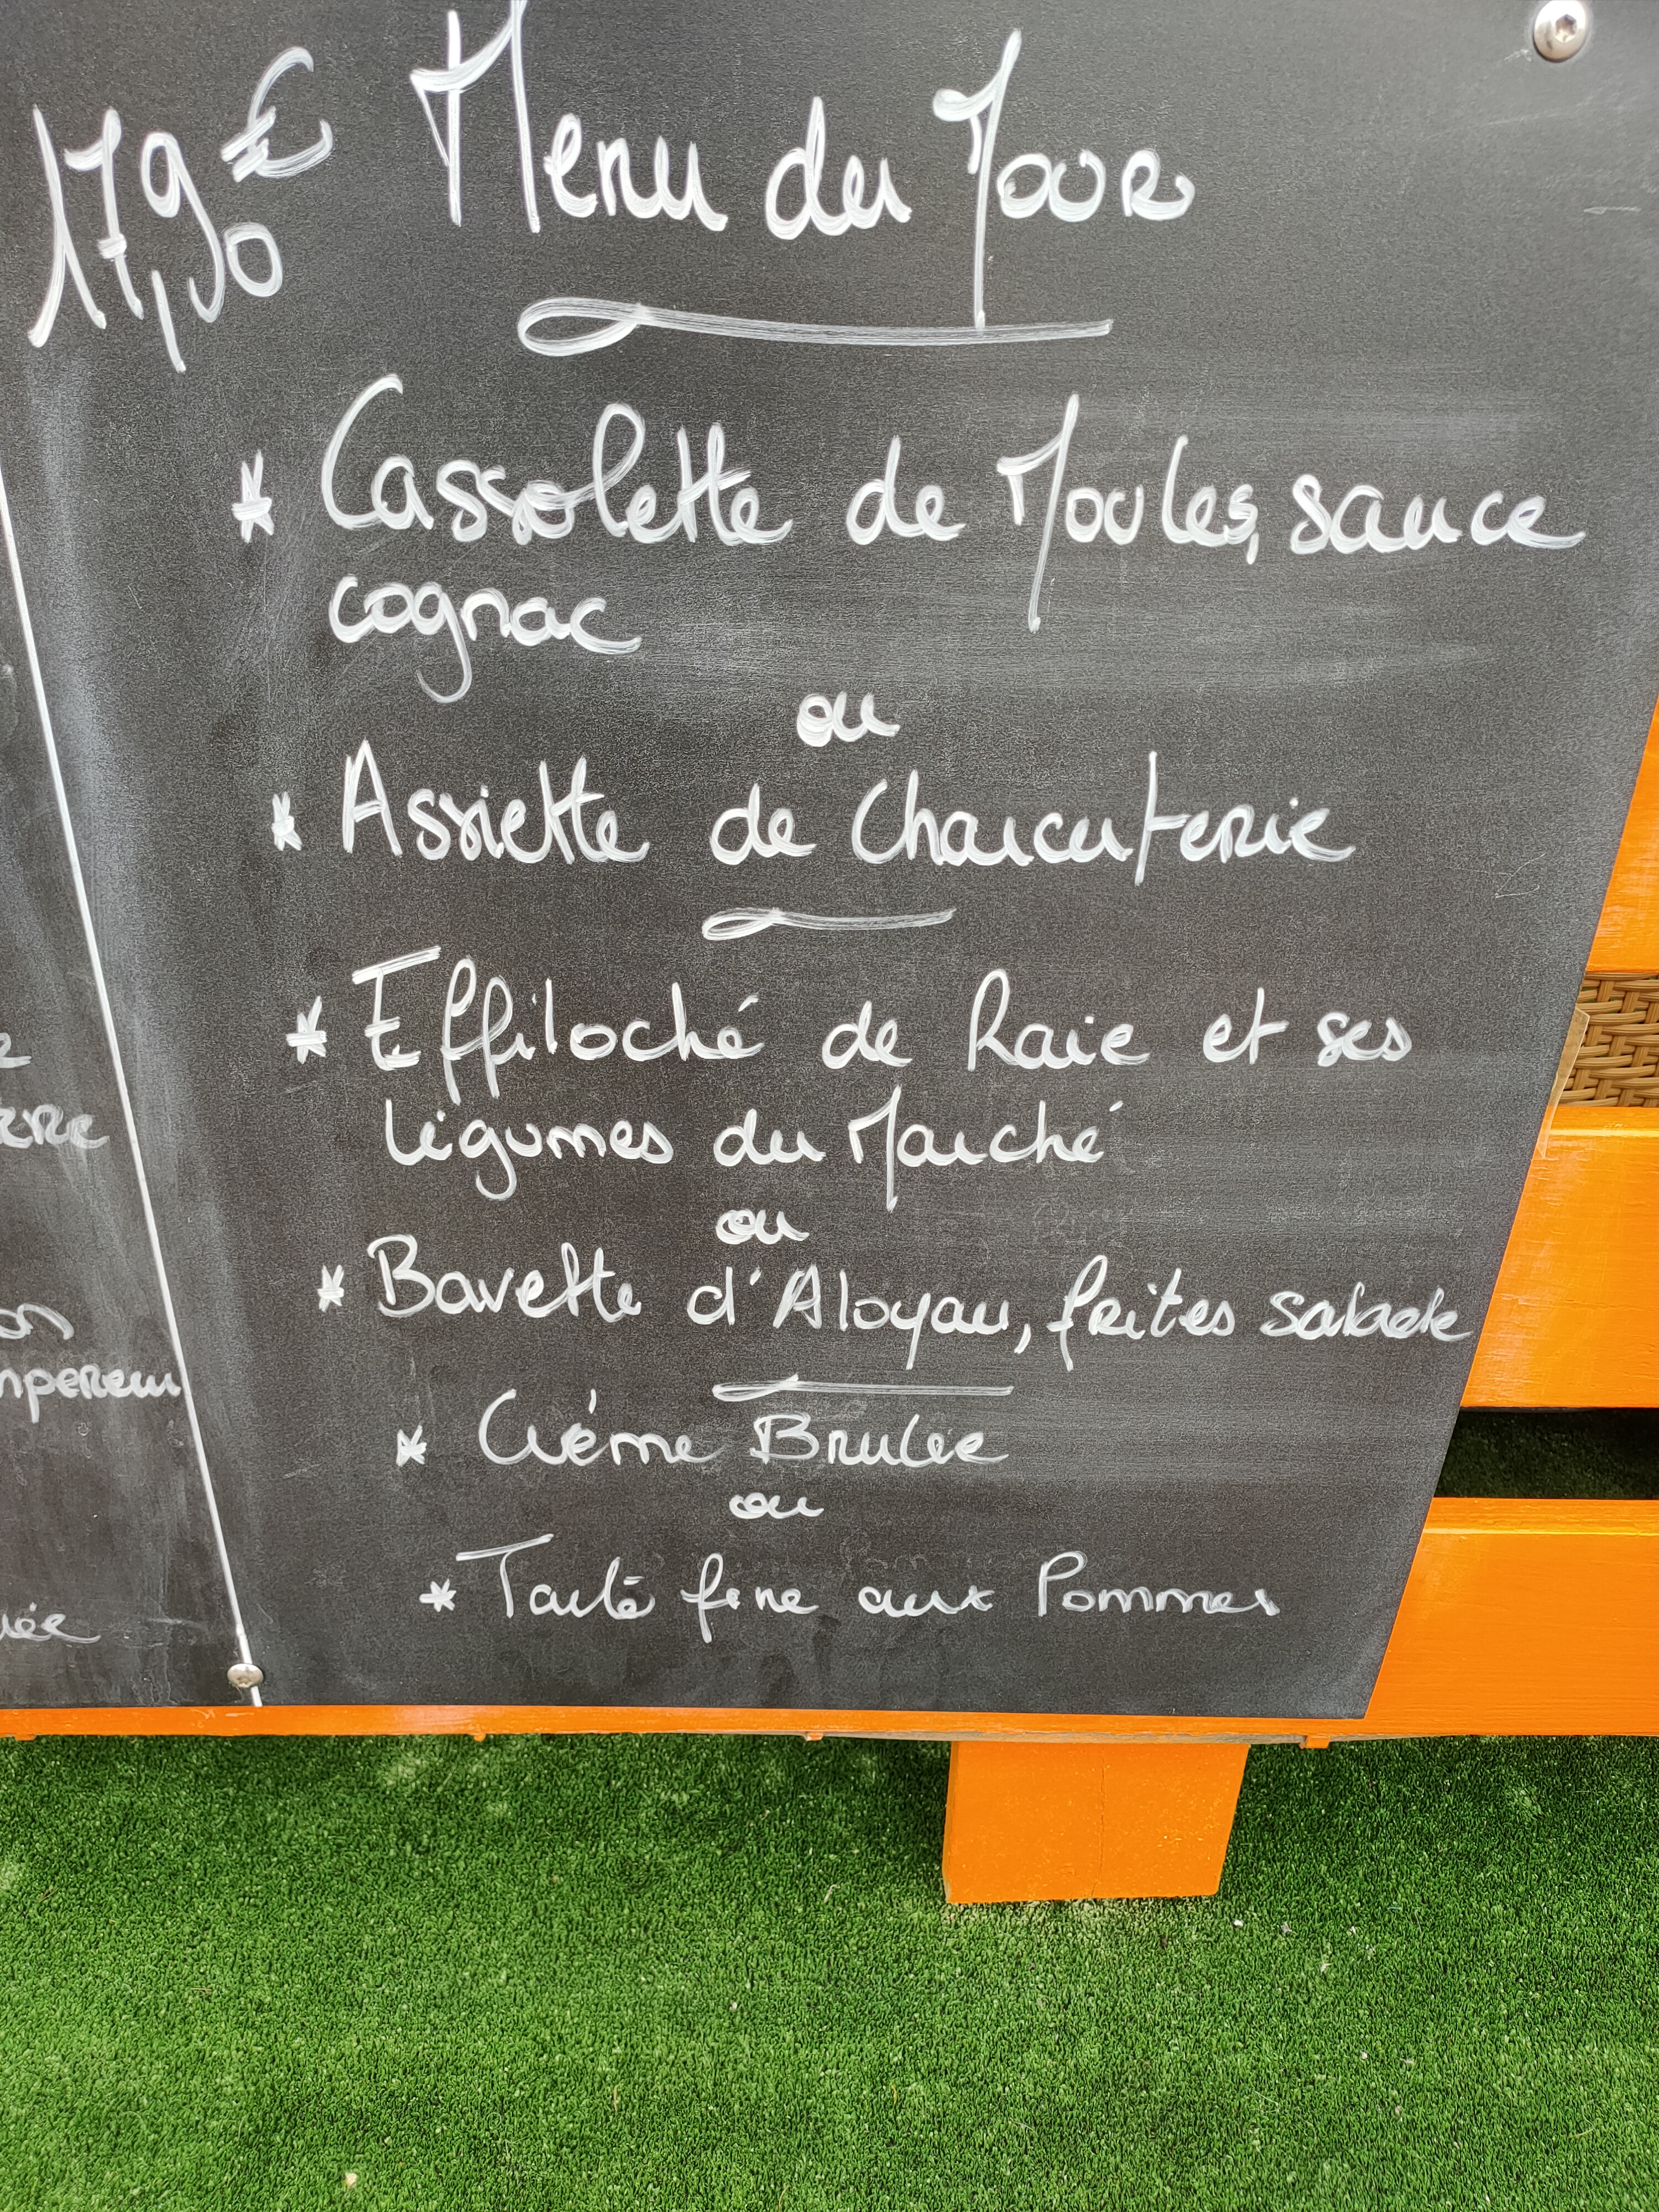 17,90€ Menu du Jour
* Cassolette de Moules, sauce
cognac
ou
* Assiette de Charcuterie
* Effiloché de Raie et ses
légumes du Marché
ou
* Bavette d'Aloyau, frites salade
* Créme Brulée
ou
* Tarte fine aux Pommes